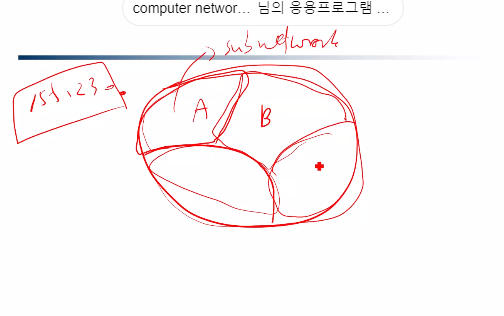 computer networ... 님의 응용프로그램 ...
subnetwork
A
B